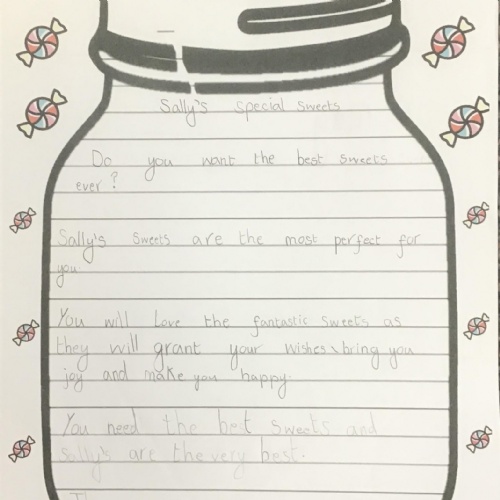 Sally's special sweets
Do you want the best sweets
ever?
Sally's sweets are the most perfect for
you
You will love the fantastic sweets as
they will grant your wishes \ bring you
joy and make you happy.
You need the best sweets and
Sally's are the very best.